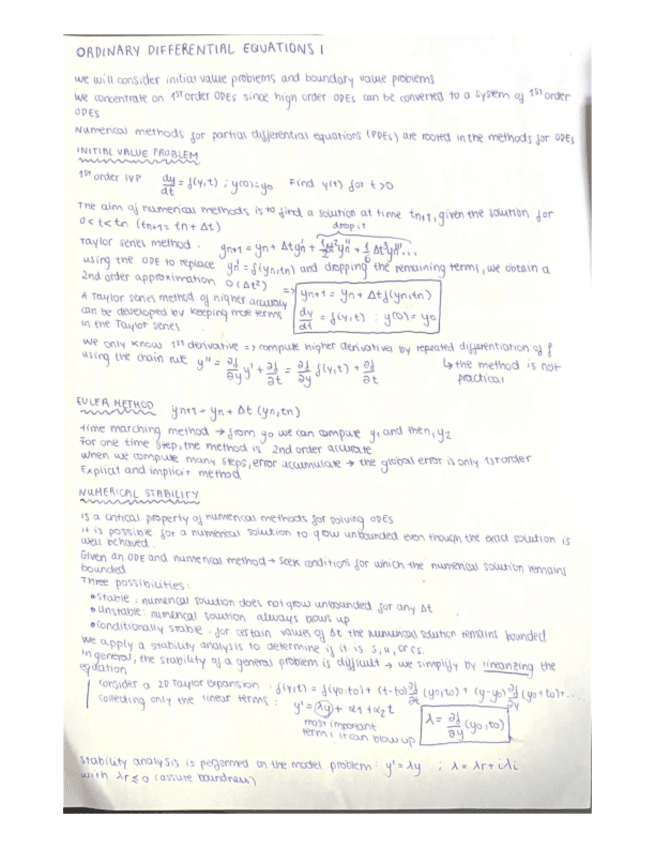 ORDINARY DIFFERENTIAL EQUATIONS 1
We will consider initial value problems and boundary value problems
We concentrate on 1st order ODEs since high order ODEs can be converted to a system of 1st order
ODEs
Numerical methods for partial differential equations (PDEs) are rooted in the methods for ODEs
INITIAL VALUE PROBLEM
1st order IVP dy/dt = f(y,t) ; y(0)=y0 Find y(t) for t>0
The aim of numerical methods is to find a solution at time tn+1, given the solution for
0<t<tn (tn+1 = tn + Δt) drop it
Taylor series method : yn+1 = yn + Δt yn' + 1/2 Δt² yn'' + 1/6 Δt³ yn''' ...
using the ODE to replace yn' = f(yn,tn) and dropping the remaining terms, we obtain a
2nd order approximation O(Δt²) => yn+1 = yn + Δt f(yn,tn)
A Taylor series method of higher accuracy
can be developed by keeping more terms dy/dt = f(y,t) ; y(0) = y0
in the Taylor series
We only know 1st derivative => compute higher derivatives by repeated differentiation of f
using the chain rule y'' = ∂f/∂y y' + ∂f/∂t = ∂f/∂y f(y,t) + ∂f/∂t ↳ the method is not
practical
EULER METHOD yn+1 = yn + Δt (yn,tn)
Time marching method → from y0 we can compute y1 and then, y2
For one time step, the method is 2nd order accurate
When we compute many steps, error accumulate → the global error is only 1st order
Explicit and implicit method
NUMERICAL STABILITY
is a critical property of numerical methods for solving ODEs
it is possible for a numerical solution to grow unbounded even though the exact solution is
well behaved
Given an ODE and numerical method → Seek conditions for which the numerical solution remains
bounded
Three possibilities :
• Stable : numerical solution does not grow unbounded for any Δt
• Unstable : numerical solution always blows up
• Conditionally stable : for certain values of Δt the numerical solution remains bounded
We apply a stability analysis to determine if it is S, U, or CS.
In general, the stability of a general problem is difficult → we simplify by linearizing the
equation
Consider a 2D Taylor expansion : f(y,t) = f(y0,t0) + (t-t0) ∂f/∂t (y0,t0) + (y-y0) ∂f/∂y (y0,t0) + ...
collecting only the linear terms : y' = λy + α1 + α2 t
most important λ = ∂f/∂y (y0,t0)
term ; it can blow up
Stability analysis is performed on the model problem : y' = λy ; λ = λr + iλi
with λr ≤ 0 (assure